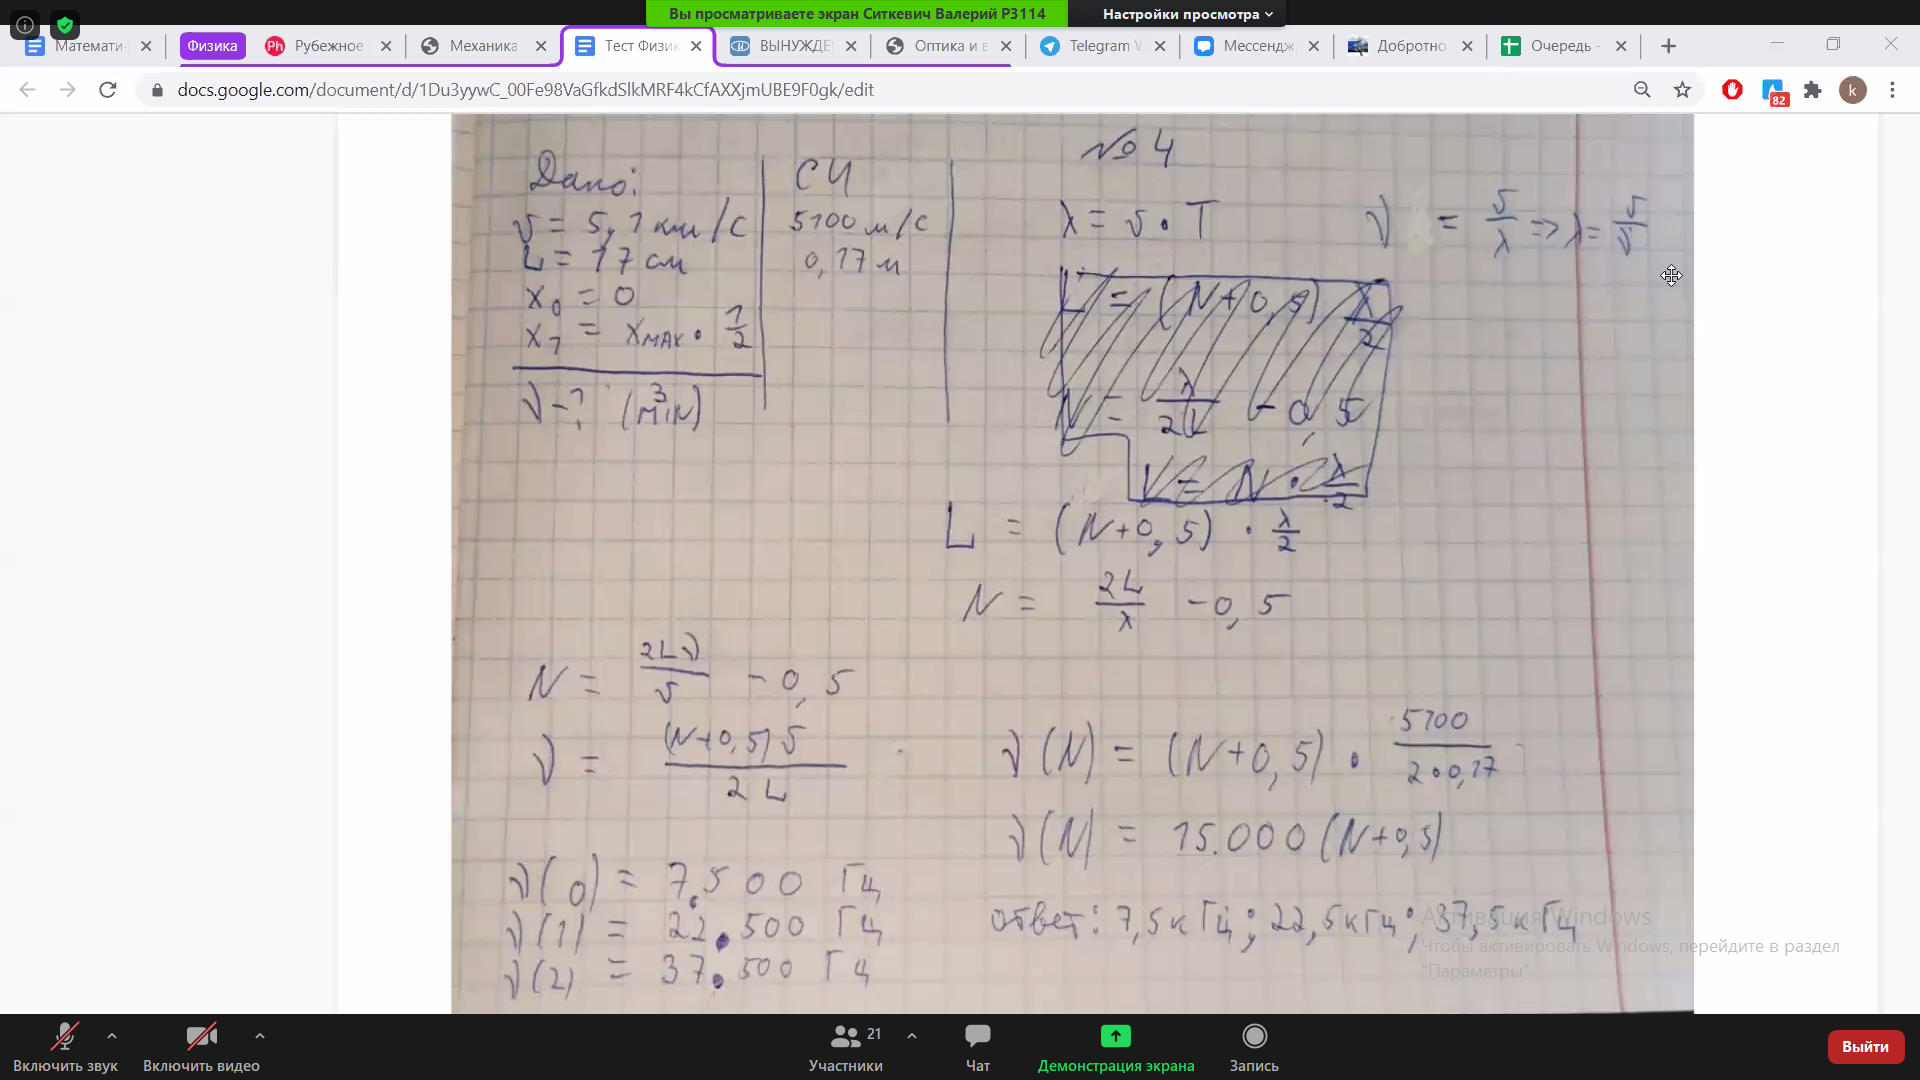 Вы просматриваете экран Ситкевич Валерий P3114
Настройки просмотра
Математи
Физика
Рубежное
Механика
Тест Физик
ВЫНУЖДЕ
Оптика и в
Telegram W
Мессендж
Добротно
Очередь -
docs.google.com/document/d/1Du3yywC_00Fe98VaGfkdSlkMRF4kCfAXXjmUBE9F0gk/edit
82
k
№ 4
Дано:
СИ
v = 5,1 км/с
5100 м/с
L = 17 см
0,17 м
x₀ = 0
x₁ = xмах · 1/2
ν - ? (3 MIN)
λ = v · T
ν = v/λ => λ = v/ν
L = (N+0,5) λ/2
N = λ/2L - 0,5
L = (N+0,5) · λ/2
N = 2L/λ - 0,5
N = 2Lν/v - 0,5
ν = (N+0,5)v/2L
ν(N) = (N+0,5) · 5100/2·0,17
ν(N) = 15.000 (N+0,5)
ν(0) = 7.500 Гц
ν(1) = 22.500 Гц
ν(2) = 37.500 Гц
ответ: 7,5 кГц; 22,5 кГц; 37,5 кГц
Активация Windows
Чтобы активировать Windows, перейдите в раздел
"Параметры".
Включить звук
Включить видео
21
Участники
Чат
Демонстрация экрана
Запись
Выйти